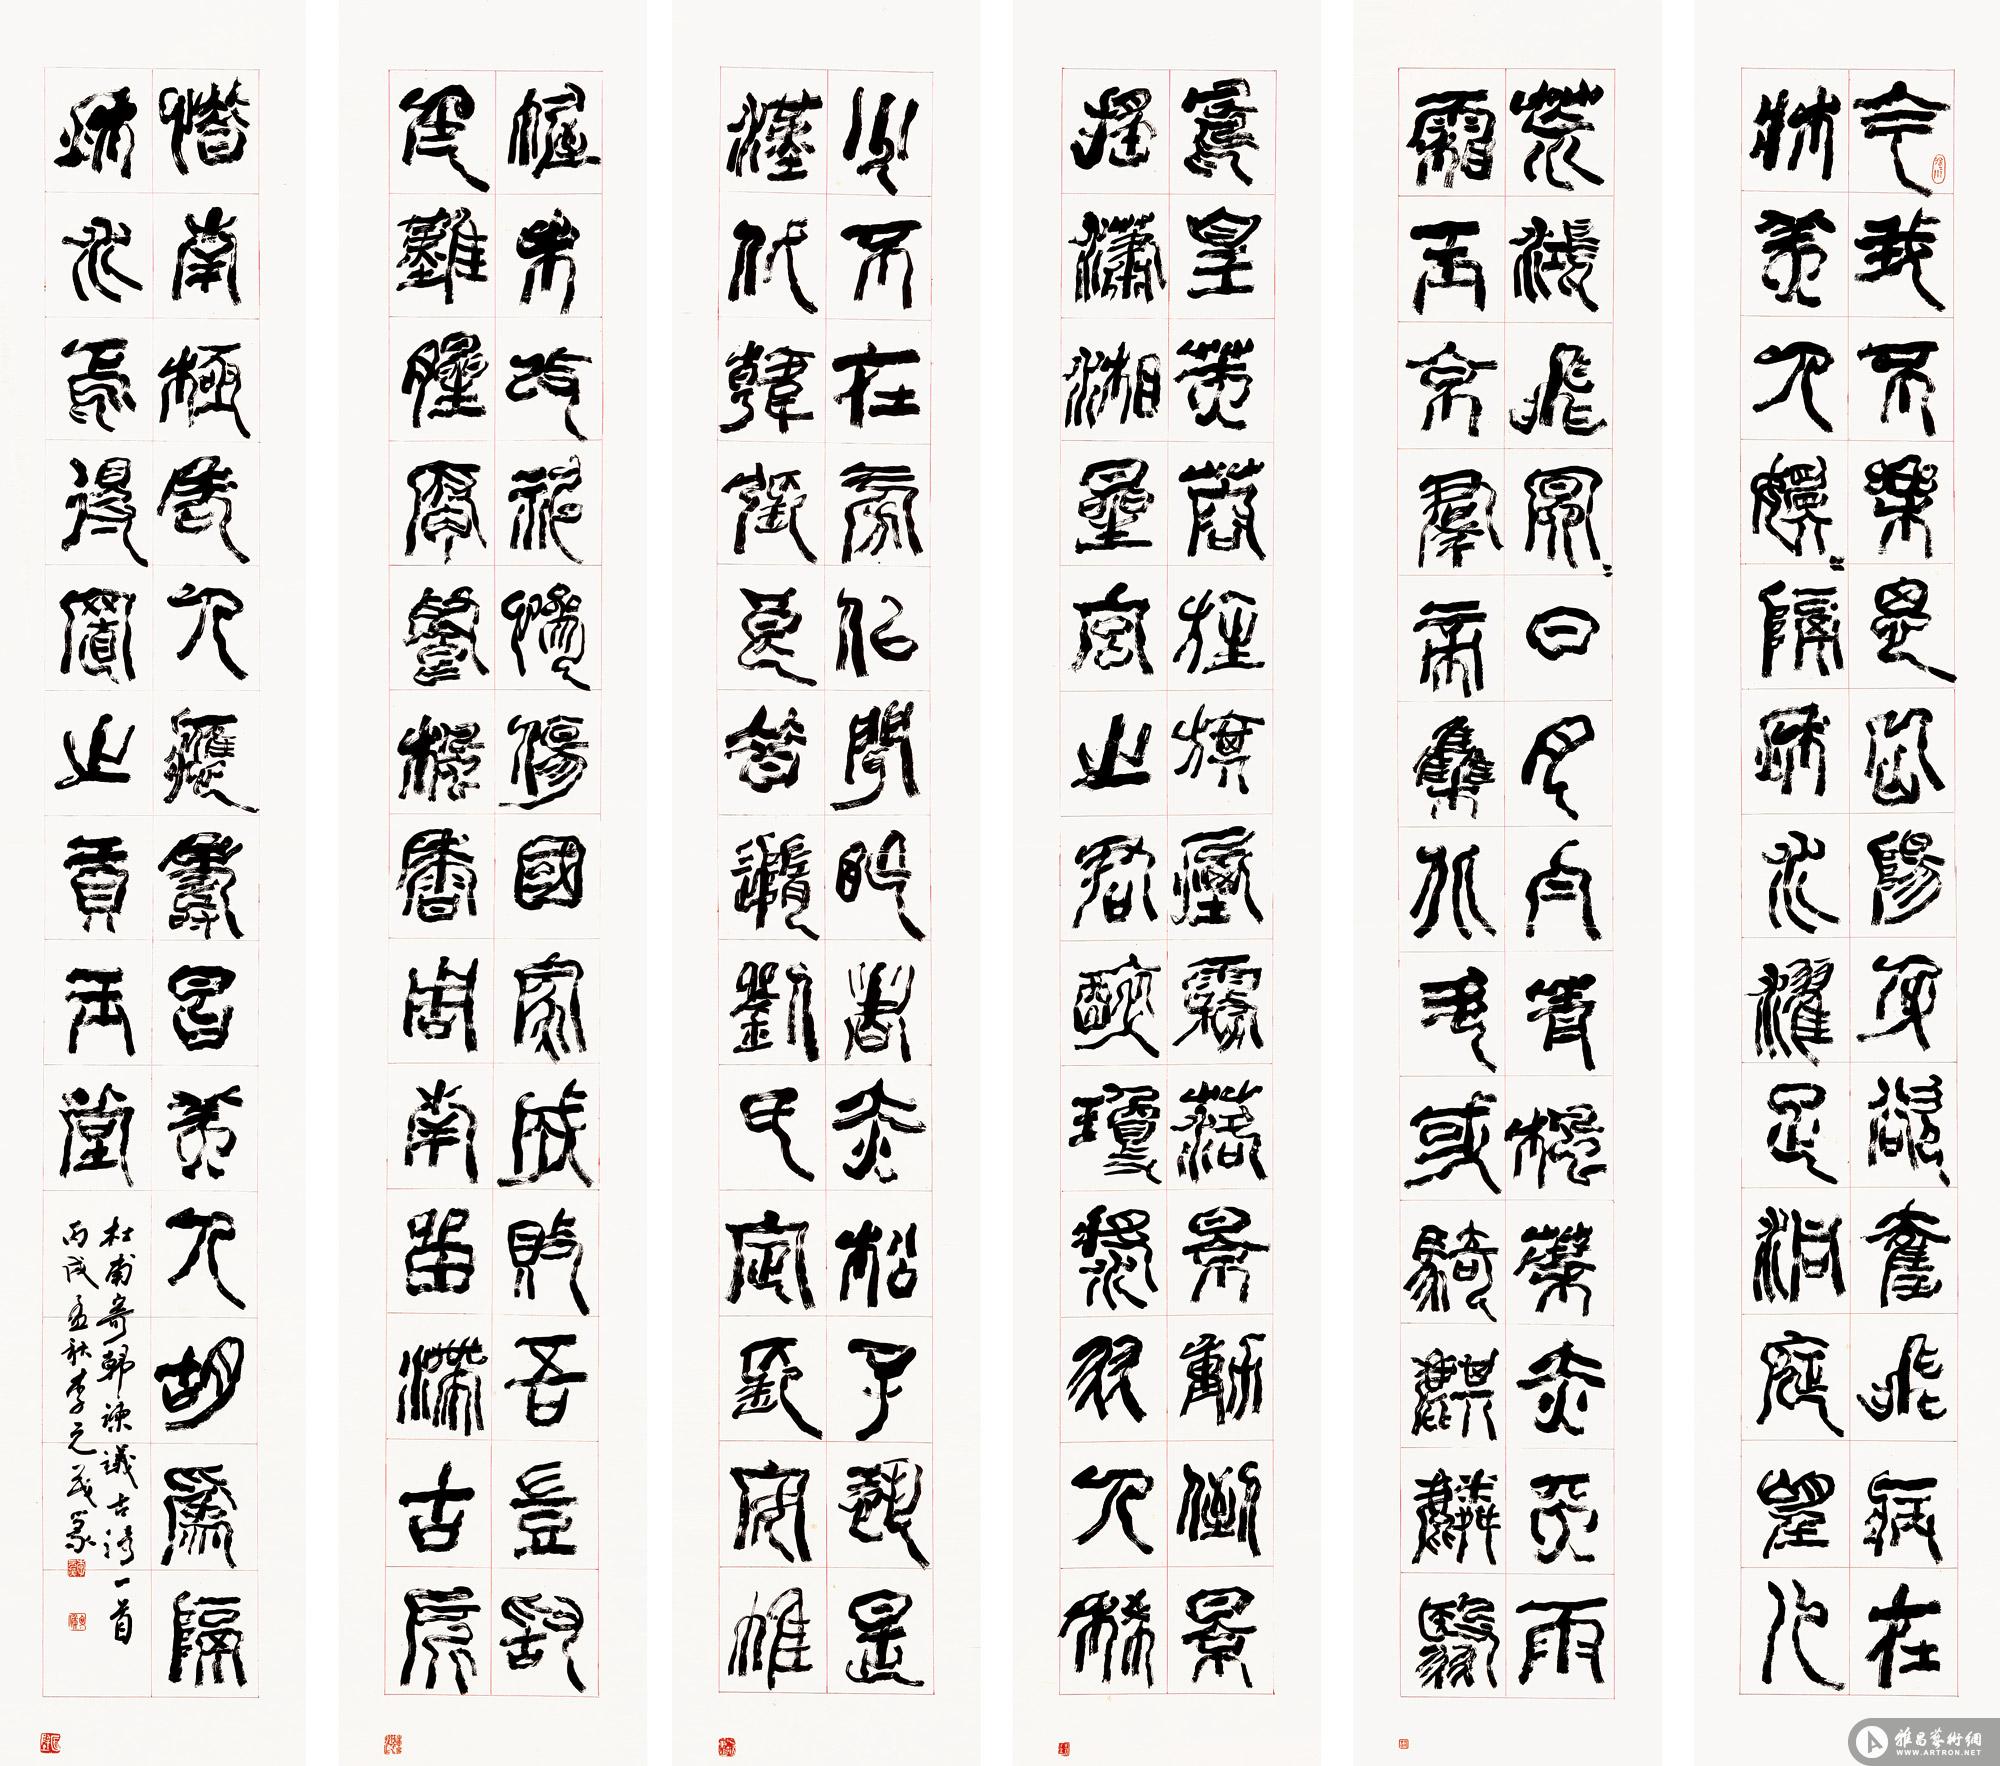 今我不樂思岳陽身欲奮飛病在
牀美人娟〻隔秋水濯足洞庭望八
荒鴻飛冥〻日月白青楓葉赤天雨
霜玉京群帝集北斗或騎麒麟翳
鳳皇芙蓉旌旗煙霧落景動倒景
搖瀟湘星宮之君醉瓊漿羽人稀
少不在旁似聞昨者赤松子恐是
漢代韓張良昔隨劉氏定長安帷
幄未改神慘傷國家成敗吾豈敢
色難腥腐餐楓香周南留滯古所
惜南極老人應壽昌美人胡爲隔
秋水焉得置之貢玉堂
杜甫寄韓諫議古詩一首
丙戌孟秋李元茂篆
雅昌藝術網
WWW.ARTRON.NET